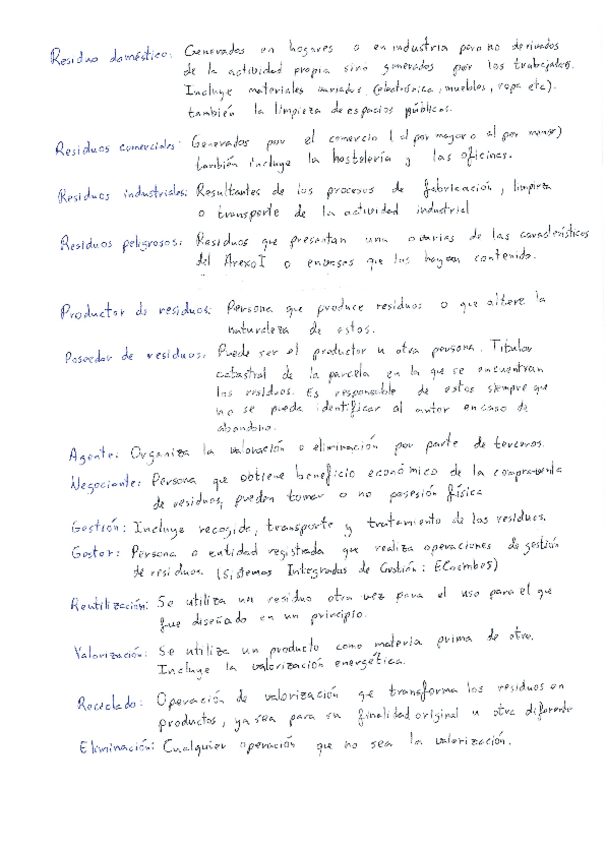 Residuo doméstico: Generados en hogares o en industria pero no derivados
de la actividad propia sino generados por los trabajadores.
Incluye materiales variados (electrónica, muebles, ropa etc).
también la limpieza de espacios públicos.
Residuos comerciales: Generados por el comercio (al por mayor o al por menor)
también incluye la hostelería y las oficinas.
Residuos industriales: Resultantes de los procesos de fabricación, limpieza
o transporte de la actividad industrial
Residuos peligrosos: Residuos que presentan una o varias de las características
del Anexo I o envases que los hayan contenido.
Productor de residuos: Persona que produce residuos o que altere la
naturaleza de estos.
Poseedor de residuos: Puede ser el productor u otra persona. Titular
catastral de la parcela en la que se encuentran
los residuos. Es responsable de estos siempre que
no se pueda identificar al autor en caso de
abandono.
Agente: Organiza la valoración o eliminación por parte de terceros.
Negociante: Persona que obtiene beneficio económico de la compraventa
de residuos, pueden tomar o no posesión física
Gestión: Incluye recogida, transporte y tratamiento de los residuos.
Gestor: Persona o entidad registrada que realiza operaciones de gestión
de residuos. (Sistemas Integrados de Gestión: ECOembes)
Reutilización: Se utiliza un residuo otra vez para el uso para el que
fue diseñado en un principio.
Valorización: Se utiliza un producto como materia prima de otro.
Incluye la valorización energética.
Reciclado: Operación de valorización qe transforma los residuos en
productos, ya sea para su finalidad original u otra diferente
Eliminación: Cualquier operación que no sea la valorización.